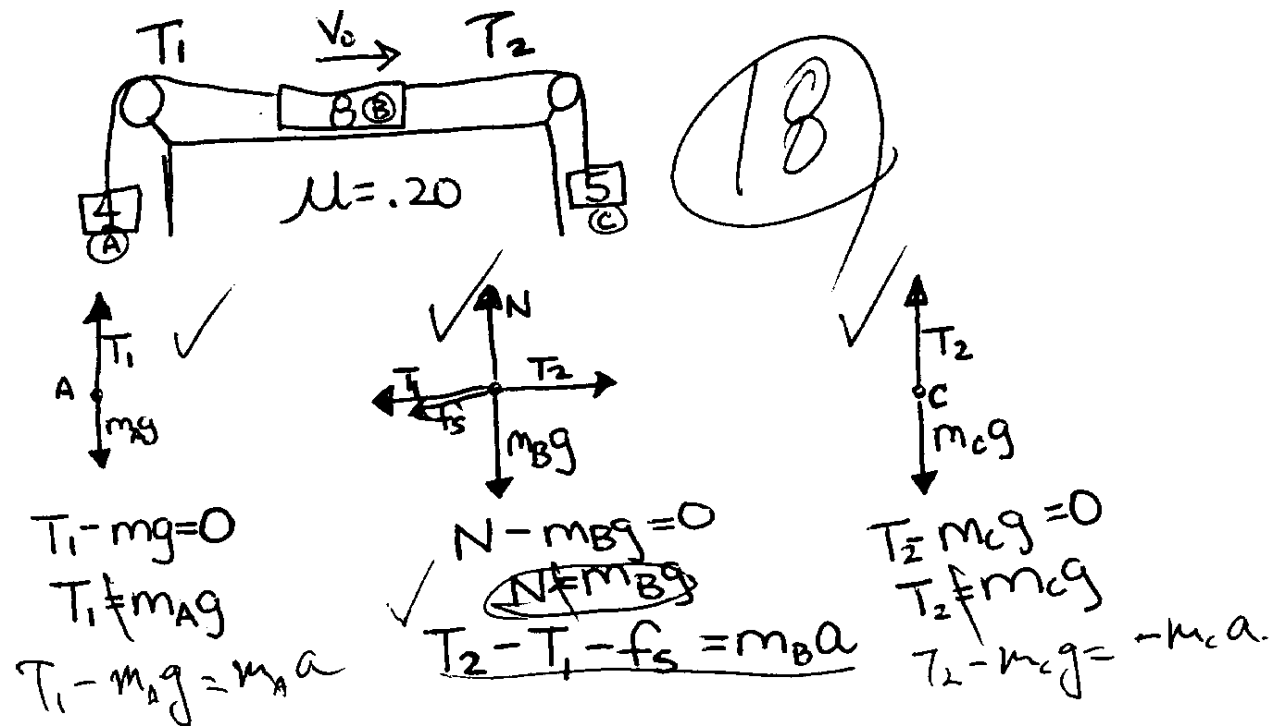 T₁ V₀ T₂
8 Ⓑ
18
4
Ⓐ
μ=.20
5
Ⓒ
T₁
A
m_Ag
N
T₁
T₂
f_s
m_Bg
T₂
C
m_cg
T₁-mg=0
T₁=m_Ag
T₁-m_Ag=m_Aa
N-m_Bg=0
N=m_Bg
T₂-T₁-f_s=m_Ba
T₂-m_cg=0
T₂=m_cg
T₂-m_cg=-m_ca.